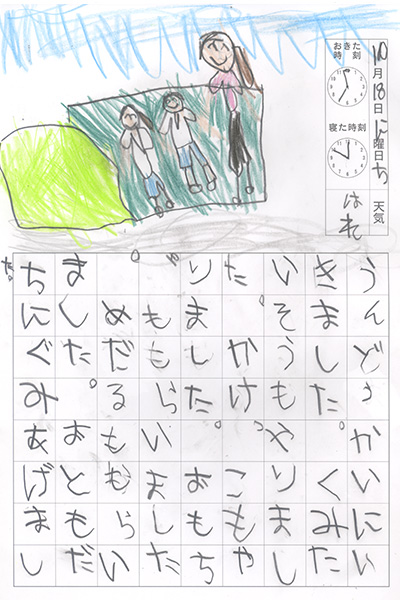 10月18日にち曜日
天気 はれ
おきた時刻
寝た時刻
うんどうかいにい
きました。くみた
いそうもやりまし
た。かけっこもや
りました。おもち
ゃももらいました
。めだるももらい
ました。おともだ
ちにぐみあげまし
た。